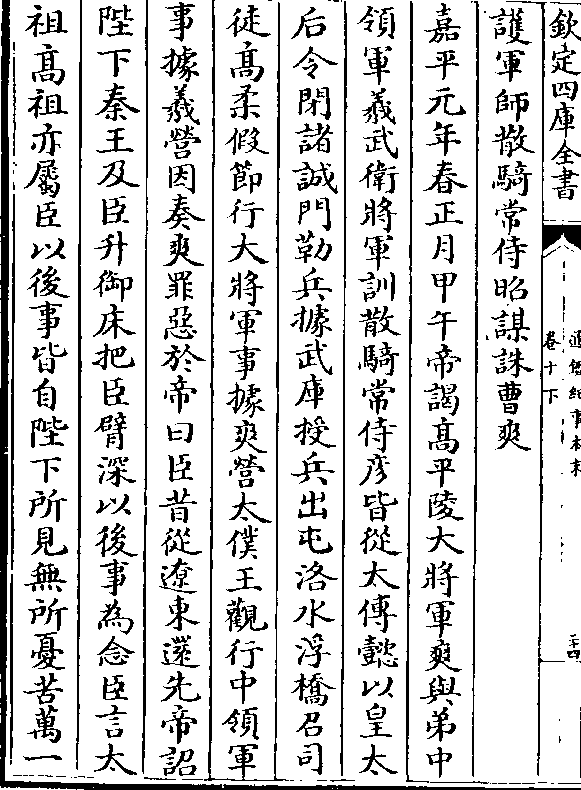 欽定四庫全書
通鑑紀事本末
卷十下
二十四
護軍師散騎常侍昭謀誅曹爽
嘉平元年春正月甲午帝謁髙平陵大將軍爽與弟中
領軍羲武衛將軍訓散騎常侍彦皆從太傅懿以皇太
后令閉諸誠門勒兵據武庫授兵出屯洛水浮橋召司
徒髙柔假節行大將軍事據爽營太僕王觀行中領軍
事據羲營因奏爽罪惡於帝曰臣昔從遼東還先帝詔
陛下秦王及臣升御床把臣臂深以後事為念臣言太
祖髙祖亦屬臣以後事皆自陛下所見無所憂苦萬一